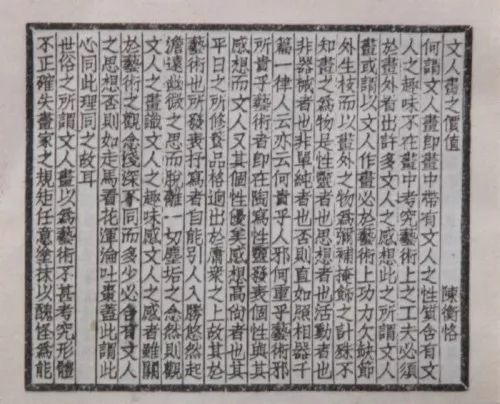 文人畫之價值　陳衡恪
何謂文人畫卽畫中帶有文人之性質含有文
人之趣味不在畫中考究藝術上之工夫必須
於畫外看出許多文人之感想此之所謂文人
畫或謂以文人作畫必於藝術上功力欠缺節
外生枝而以畫外之物爲彌補掩飾之計殊不
知畫之爲物是性靈者也思想者也活動者也
非器械者也非單純者也否則直如照相器千
篇一律人云亦云何貴乎人邪何重乎藝術邪
所貴乎藝術者卽在陶寫性靈發表個性與其
感想而文人又其個性優美感想高尚者也其
平日之所修養品格迥出於庸衆之上故其於
藝術也所發表抒寫者自能引人入勝悠然起
澹遠幽微之思而脫離一切塵垢之念然則觀
文人之畫識文人之趣味感文人之感者雖關
於藝術之觀念淺深不同而多少必含有文人
之思想否則如走馬看花渾淪吐棗蓋此謂此
心同此理同之故耳
世俗之所謂文人畫以爲藝術不甚考究形體
不正確失畫家之規矩任意塗抹以醜怪爲能